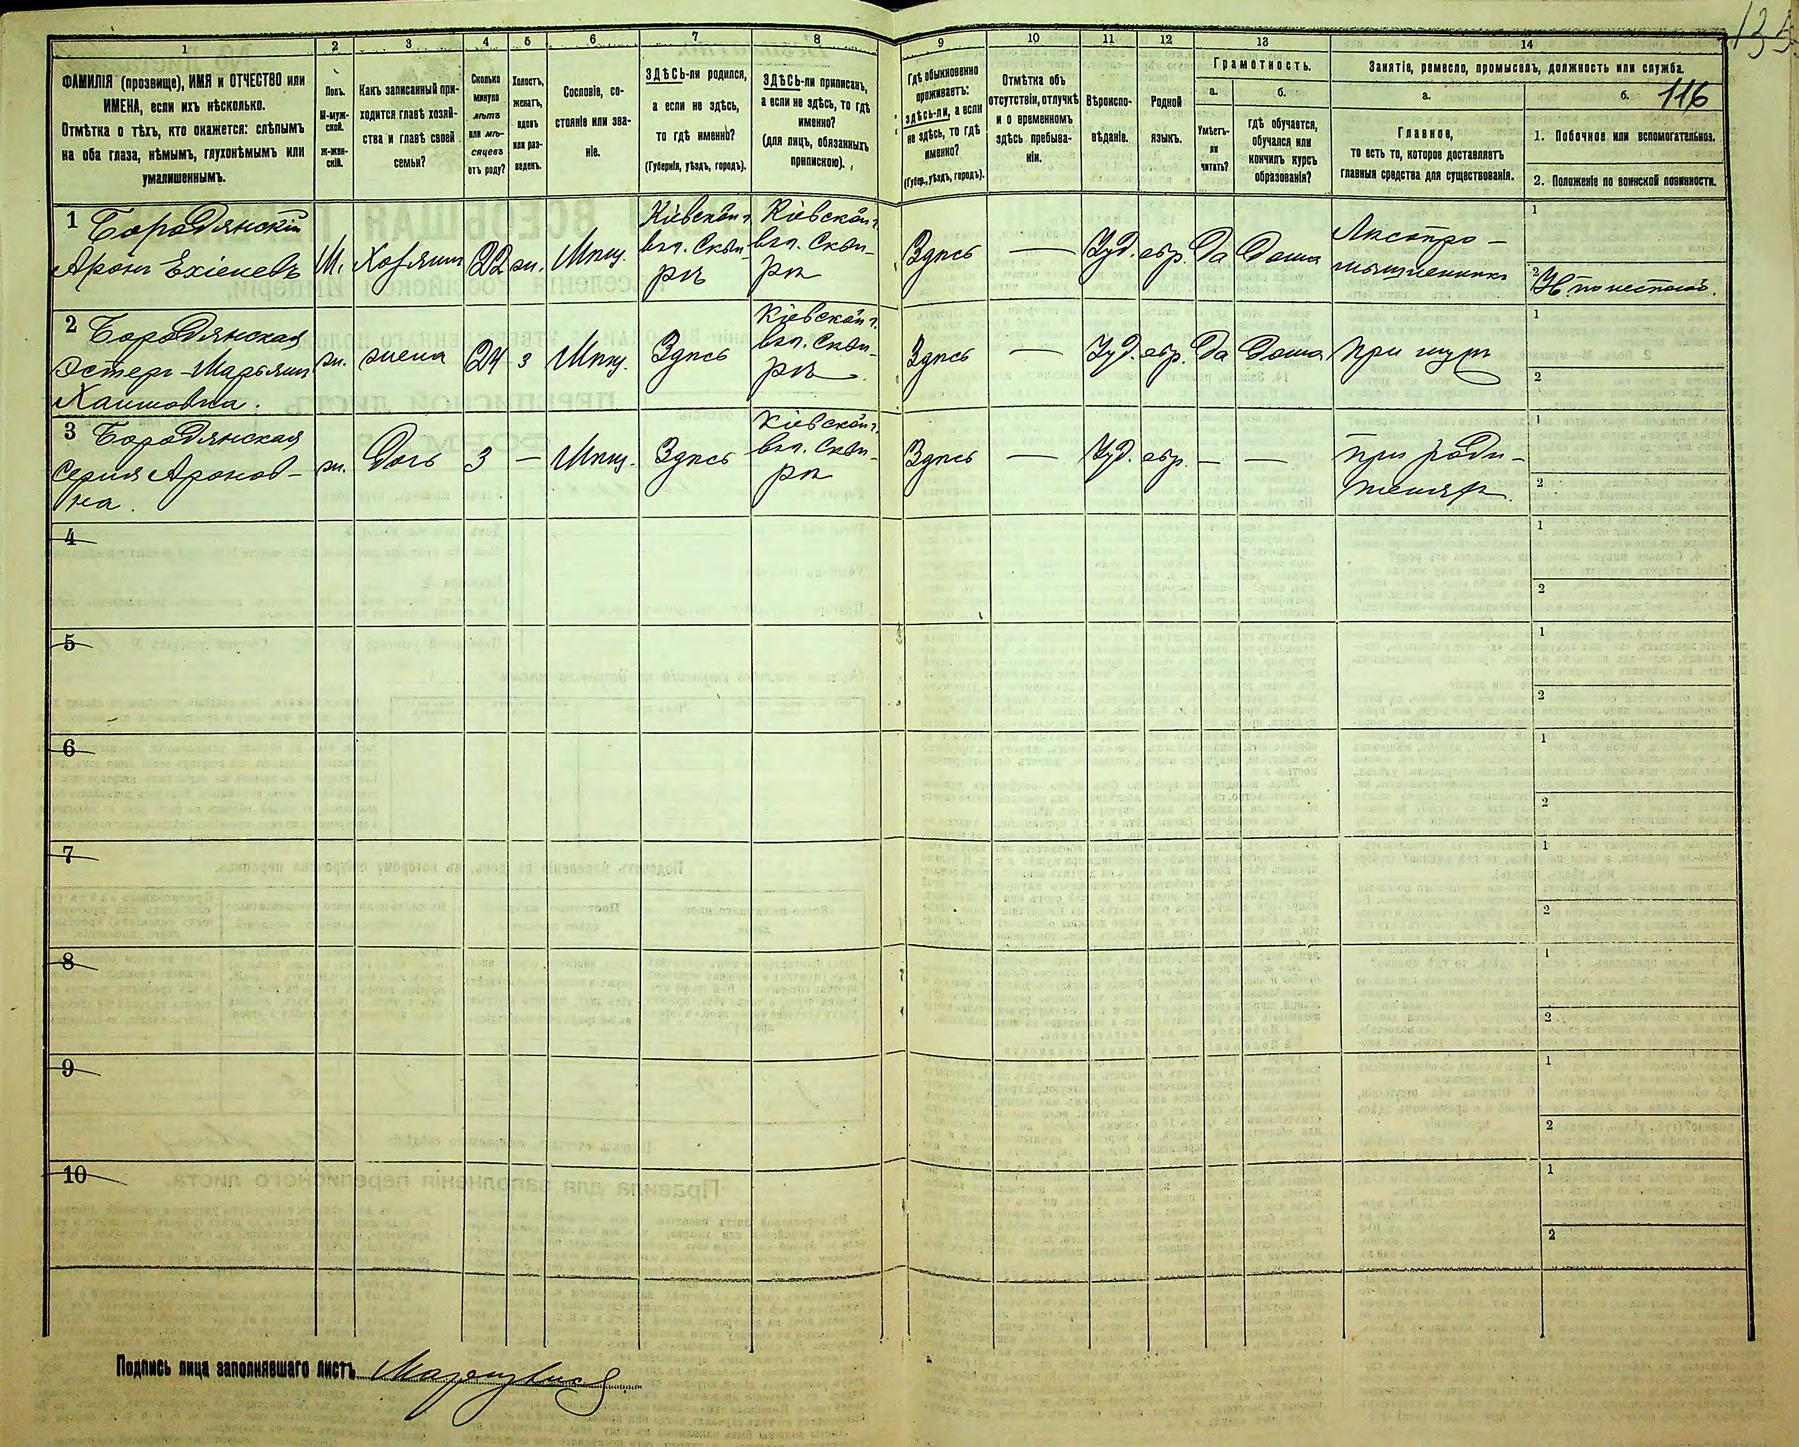 135
116
1 2 3 4 5 6 7 8 9 10 11 12 13 14
ФАМИЛІЯ (прозвище), ИМЯ и ОТЧЕСТВО или
ИМЕНА, если ихъ нѣсколько.
Отмѣтка о тѣхъ, кто окажется: слѣпымъ
на оба глаза, нѣмымъ, глухонѣмымъ или
умалишеннымъ.
Полъ.
М-муж-
ской.
Ж-жен-
скій.
Какъ записанный при-
ходится главѣ хозяй-
ства и главѣ своей
семьи?
Сколько
минуло
лѣтъ
или мѣ-
сяцевъ
отъ роду?
Холостъ,
женатъ,
вдовъ
или раз-
веденъ.
Сословіе, со-
стояніе или зва-
ніе.
ЗДѢСЬ-ли родился,
а если не здѣсь,
то гдѣ именно?
(Губернія, уѣздъ, городъ).
ЗДѢСЬ-ли приписанъ,
а если не здѣсь, то гдѣ
именно?
(для лицъ, обязанныхъ
припискою).
Гдѣ обыкновенно
проживаетъ:
здѣсь-ли, а если
не здѣсь, то гдѣ
именно?
(Губер., уѣздъ, городъ).
Отмѣтка объ
отсутствіи, отлучкѣ
и о временномъ
здѣсь пребыва-
ніи.
Вѣроиспо-
вѣданіе.
Родной
языкъ.
Грамотность.
а.
Умѣетъ-
ли
читать?
б.
гдѣ обучается,
обучался или
кончилъ курсъ
образованія?
Занятіе, ремесло, промыселъ, должность или служба.
а.
Главное,
то есть то, которое доставляетъ
главныя средства для существованія.
б.
1. Побочное или вспомогательное.
2. Положеніе по воинской повинности.
1 Бородянскій
Аронъ Ехіелевъ
М.
Хозяинъ
22
ж.
Мѣщ.
Кіевской г.
въ г. Скви-
рѣ
Кіевской г.
въ г. Скви-
рѣ
Здѣсь
—
Іуд.
евр.
Да
Дома
Лѣсопро-
мышленникъ
1
2
2 Бородянская
Эстеръ-Марьямъ
Хаимовна.
ж.
жена
24
з
Мѣщ.
Здѣсь
Кіевской г.
въ г. Скви-
рѣ.
Здѣсь
—
Іуд.
евр.
Да
Дома
При мужѣ
1
2
3 Бородянская
Аронов-
на.
ж.
Дочь
3
—
Мѣщ.
Здѣсь
Кіевской г.
въ г. Скви-
рѣ
Здѣсь
—
Іуд.
евр.
—
—
При роди-
теляхъ.
1
2
4
1
2
5
1
2
6
1
2
7
1
2
8
1
2
9
1
2
10
1
2
Подпись лица заполнявшаго листъ